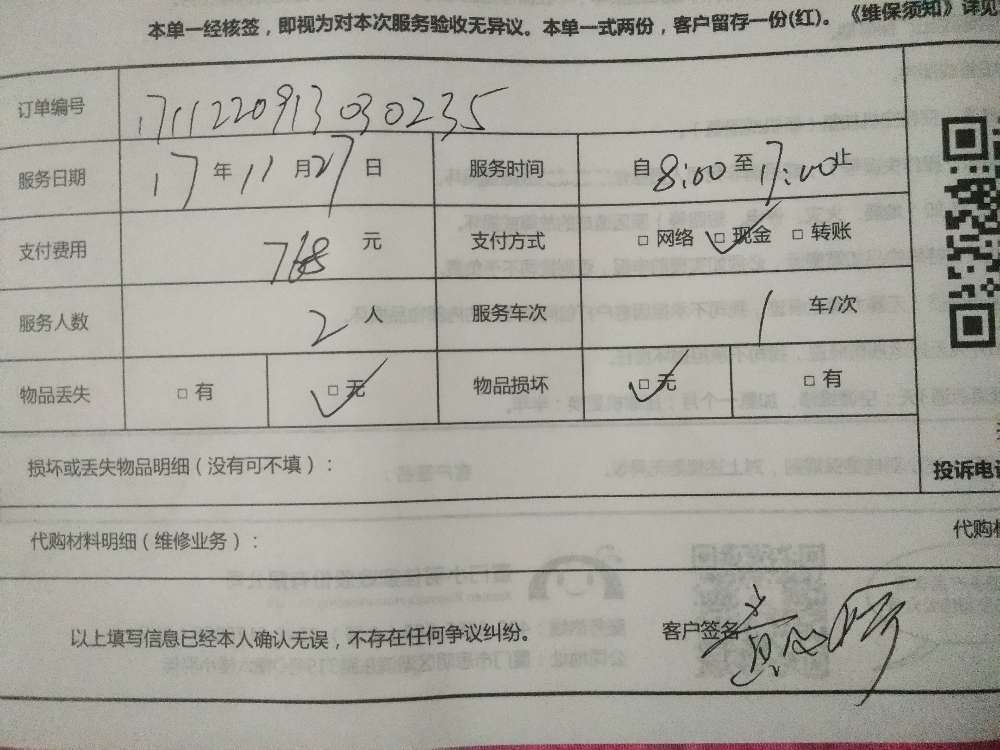 本单一经核签，即视为对本次服务验收无异议。本单一式两份，客户留存一份(红)。《维保须知》详见
订单编号 171122091303 0235
服务日期 17年11月27日 服务时间 自8:00至17:00止
支付费用 768元 支付方式 □ 网络 □ 现金 □ 转账
服务人数 2人 服务车次 1 车/次
物品丢失 □ 有 □ 无 物品损坏 □ 无 □ 有
损坏或丢失物品明细（没有可不填）：
投诉电
代购材料明细（维修业务）：
代购
以上填写信息已经本人确认无误，不存在任何争议纠纷。 客户签名